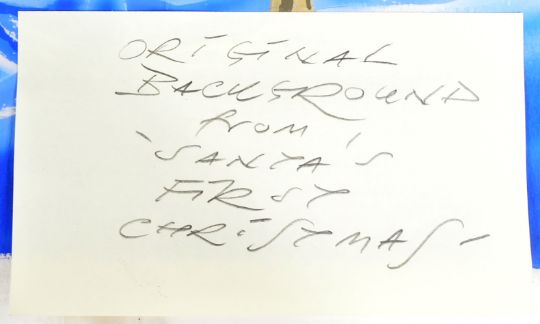 ORIGINAL
BACKGROUND
from
'SANTA'S
FIRST
CHRISTMAS'